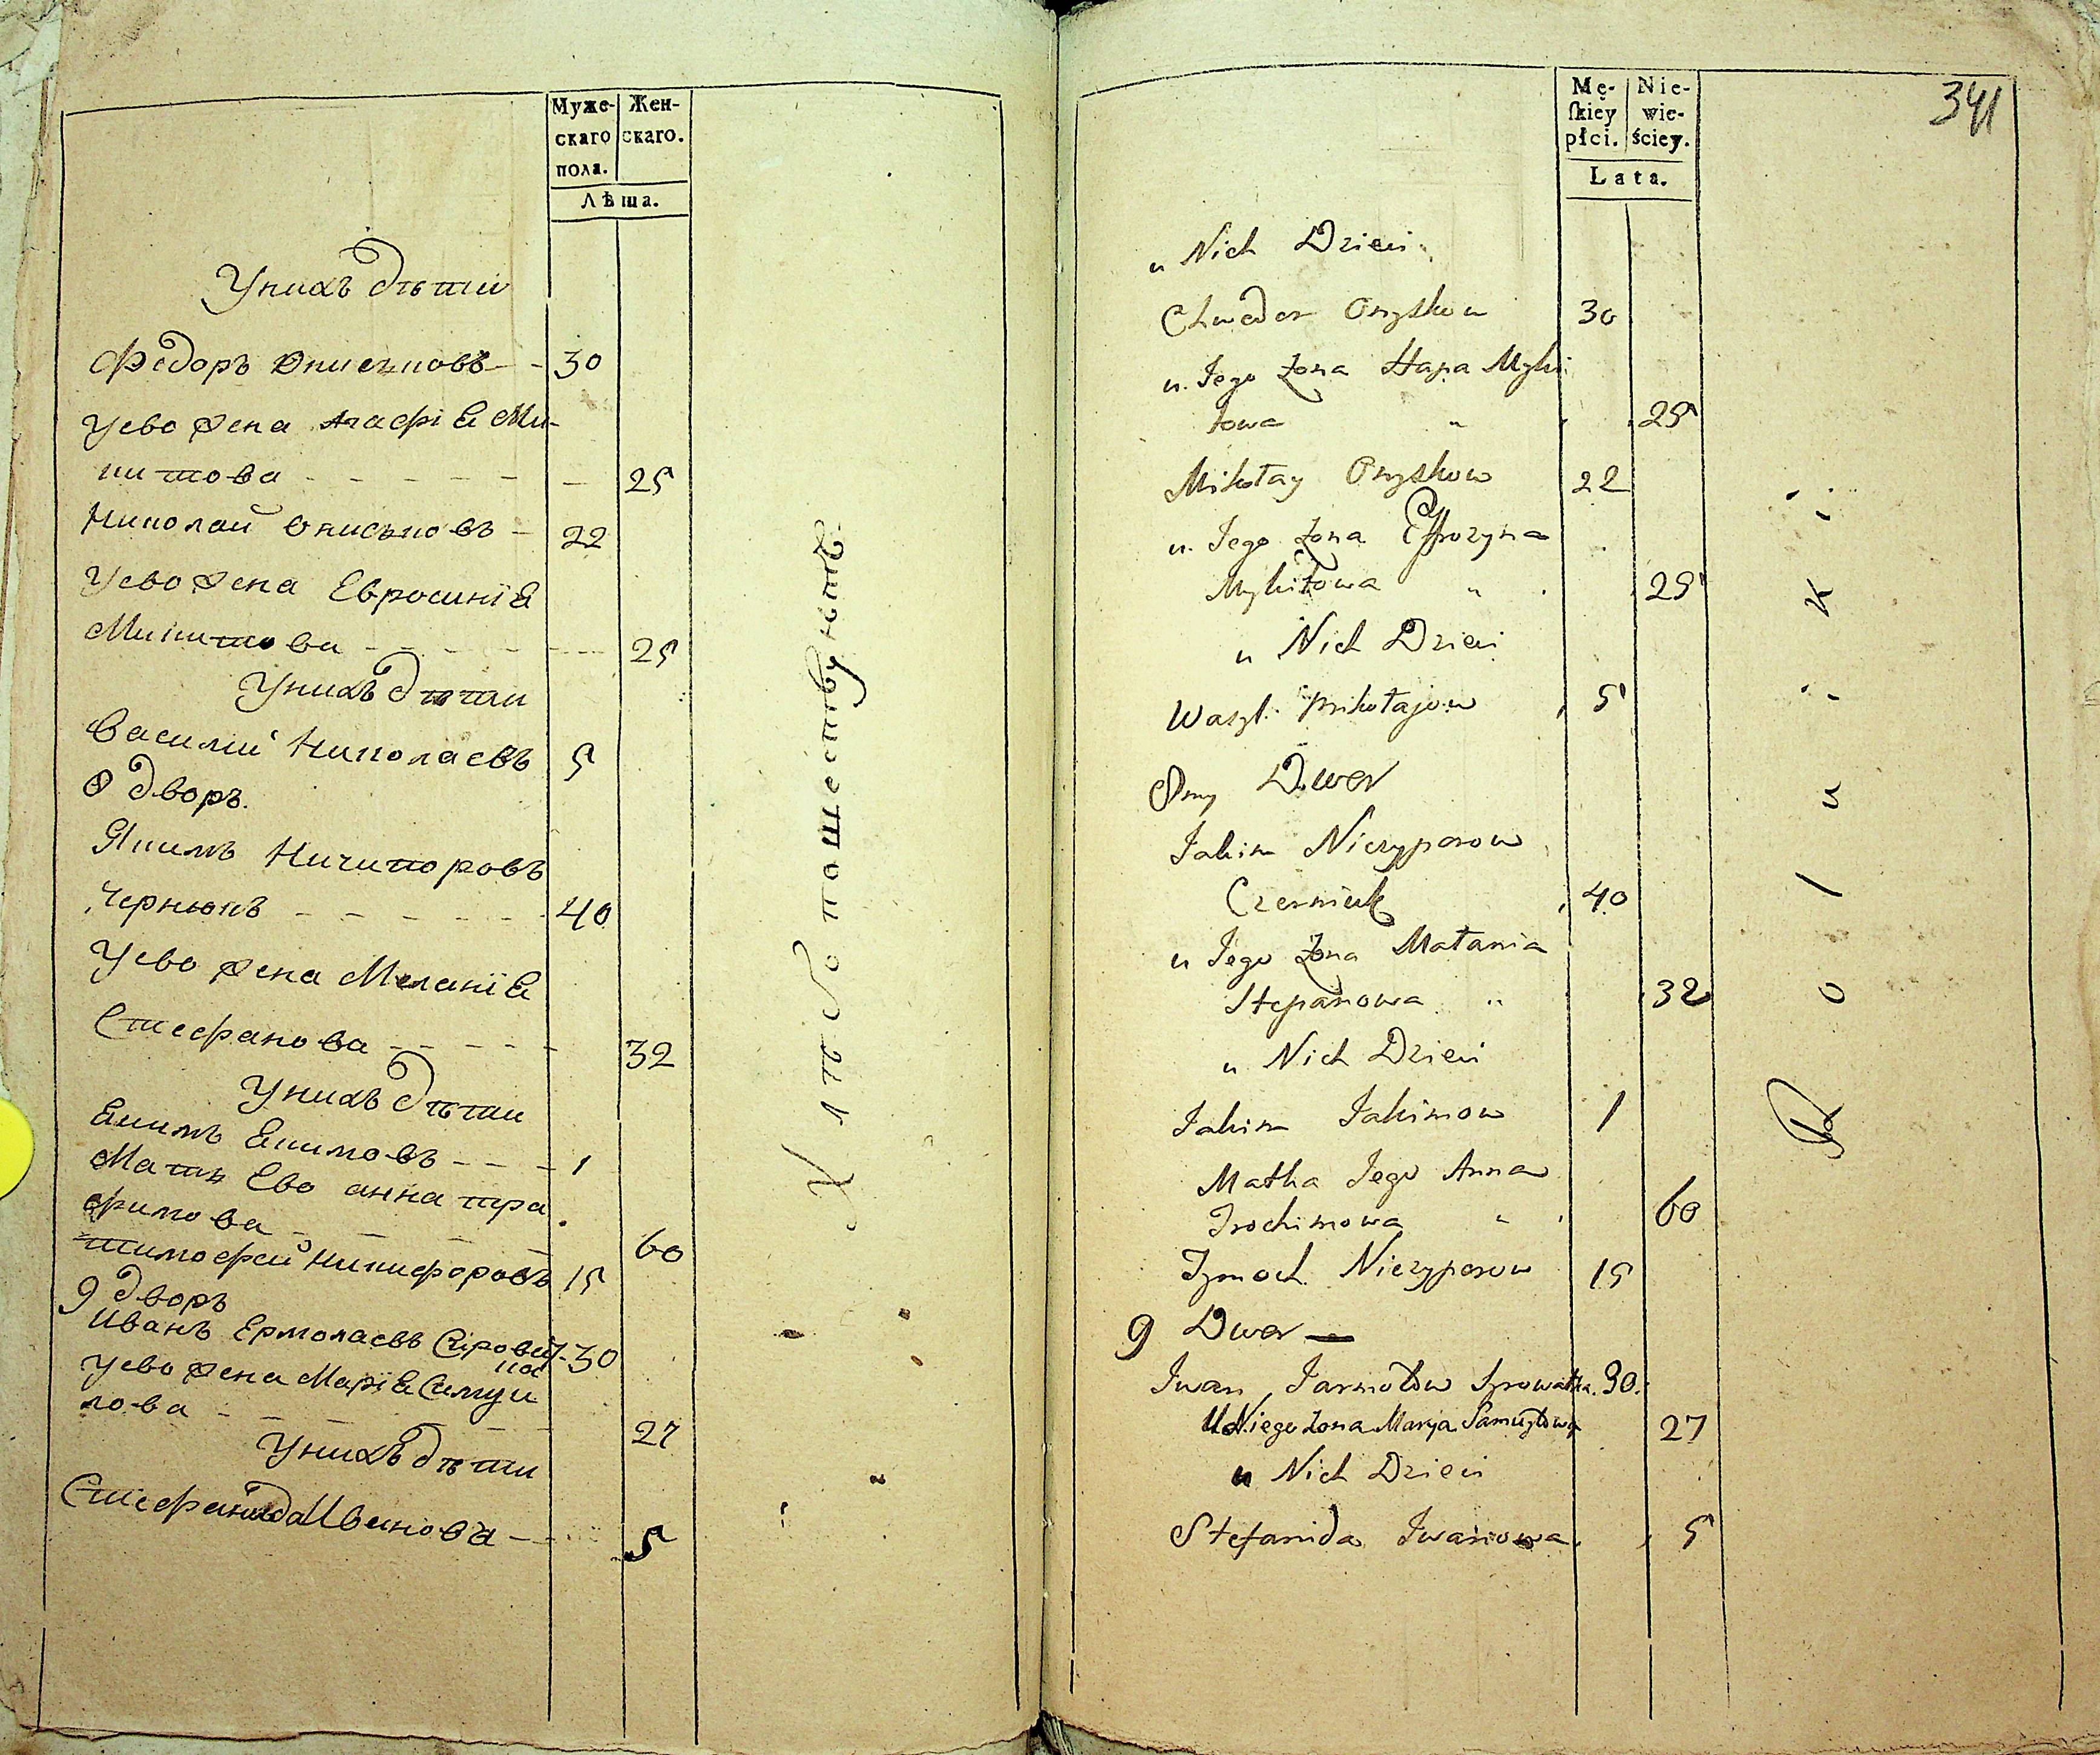 Муже-
скаго
пола.
Жен-
скаго.
Лѣта.
Унихъ дѣти
Федоръ Онисковъ - - 30
Уево жена Агафія Ми-
китова - - - - - - 25
Николай Онисковъ - 22
Уево жена Евросинія
Микитова - - - - - 25
Унихъ дѣти
Василий Николаевъ 5
8 дворъ.
Якимъ Ничипоровъ
Чернюкъ - - - - - 40
Уево жена Меланія
Стефанова - - - - - 32
Унихъ дѣти
Екимъ Екимовъ - - - 1
Мать Ево анна тра
фимова - - - - 60
тимофей Никифоровъ 15
9 дворъ
Иванъ Ермолаевъ Сирован 30
кос
Уево жена Марія Самуи
лова - - - - - 27
Унихъ дѣти
Стефанида Иванова - - 5
Хлѣбопашествуютъ
341
Mę-
ſkiey
płci.
Nie-
wie-
ściey.
Lata.
u Nich Dzieci
Chwedor Onyskow 30
u Jego Żona Hapa Myki
towa " 25
Mikołay Onyskow 22
u Jego Żona Effrozyna
Mykitowa " 25
u Nich Dzieci
Wasyl Mikołajow 5
8my Dwor
Jakim Niczyporow
Czerniuk 40
u Jego Żona Małania
Stepanowa " 32
u Nich Dzieci
Jakim Jakimow 1
Matka Jego Anna
Trochimowa " 60
Tymoch Niczyporow 15
9 Dwor —
Iwan Jarmołow Syrowatka 30
U Niego żona Marya Samuyłowa 27
u Nich Dzieci
Stefanida Iwanowa 5
Rolniki